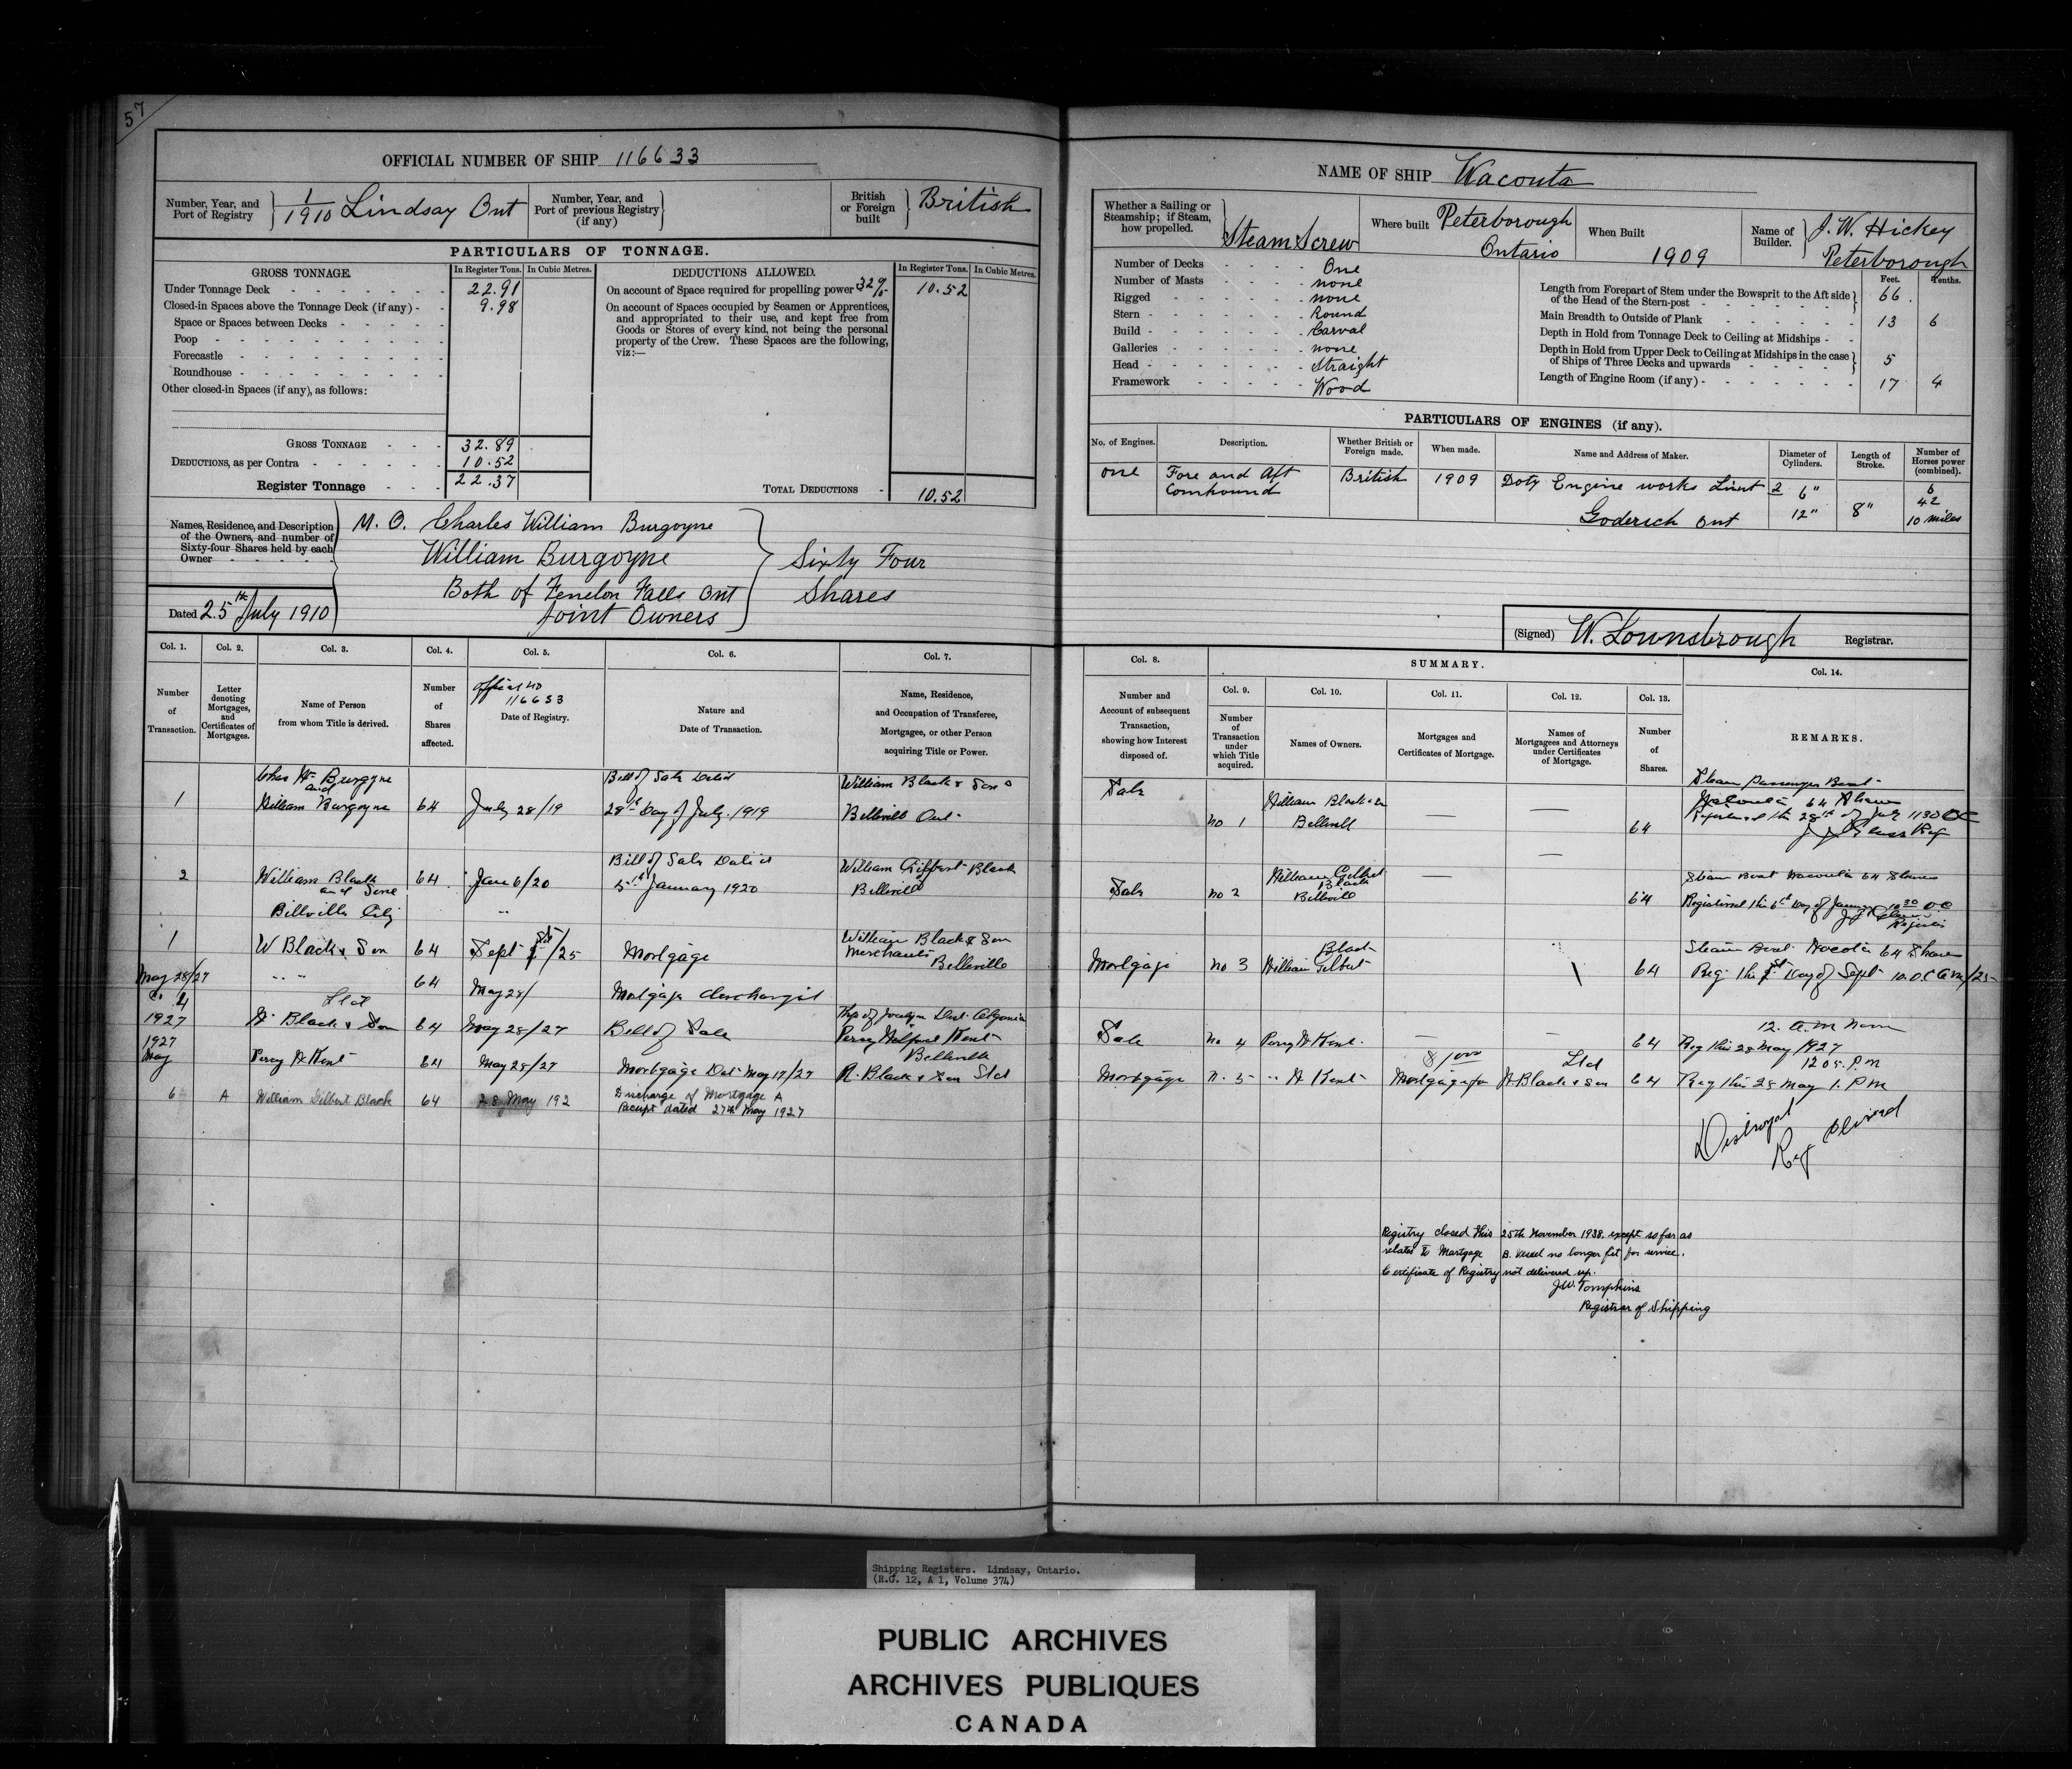 57
OFFICIAL NUMBER OF SHIP 116633
Number, Year, and Port of Registry 1/1910 Lindsay Ont
Number, Year, and Port of previous Registry (if any)
British or Foreign built British
PARTICULARS OF TONNAGE.
GROSS TONNAGE. In Register Tons. In Cubic Metres.
Under Tonnage Deck 22.91
Closed-in Spaces above the Tonnage Deck (if any) 9.98
Space or Spaces between Decks
Poop
Forecastle
Roundhouse
Other closed-in Spaces (if any), as follows:
GROSS TONNAGE 32.89
DEDUCTIONS, as per Contra 10.52
Register Tonnage 22.37
DEDUCTIONS ALLOWED. In Register Tons. In Cubic Metres.
On account of Space required for propelling power 32% 10.52
On account of Spaces occupied by Seamen or Apprentices,
and appropriated to their use, and kept free from
Goods or Stores of every kind, not being the personal
property of the Crew. These Spaces are the following,
viz:—
TOTAL DEDUCTIONS 10.52
Names, Residence, and Description
of the Owners, and number of
Sixty-four Shares held by each
Owner
M. O. Charles William Burgoyne
William Burgoyne
Both of Fenelon Falls Ont
Joint Owners
Sixty Four
Shares
Dated 25th July 1910
NAME OF SHIP Waconta
Whether a Sailing or Steamship; if Steam, how propelled. Steam Screw
Where built Peterborough Ontario
When Built 1909
Name of Builder. J. W. Hickey Peterborough
Number of Decks One
Number of Masts none
Rigged none
Stern Round
Build Carval
Galleries none
Head Straight
Framework Wood
Feet. Tenths.
Length from Forepart of Stem under the Bowsprit to the Aft side
of the Head of the Stern-post 66
Main Breadth to Outside of Plank 13 6
Depth in Hold from Tonnage Deck to Ceiling at Midships
Depth in Hold from Upper Deck to Ceiling at Midships in the case
of Ships of Three Decks and upwards 5
Length of Engine Room (if any) 17 4
PARTICULARS OF ENGINES (if any).
No. of Engines. Description. Whether British or Foreign made. When made. Name and Address of Maker. Diameter of Cylinders. Length of Stroke. Number of Horses power (combined).
one Fore and Aft Compound British 1909 Doty Engine works Limt 2 6" 8" 6
Goderich Ont 12" 42
10 miles
(Signed) W. Lownsbrough Registrar.
Col. 1. Col. 2. Col. 3. Col. 4. Col. 5. Col. 6. Col. 7.
Number of Transaction.
Letter denoting Mortgages, and Certificates of Mortgages.
Name of Person from whom Title is derived.
Number of Shares affected.
Official no 116633
Date of Registry.
Nature and Date of Transaction.
Name, Residence, and Occupation of Transferee, Mortgagee, or other Person acquiring Title or Power.
Col. 8. SUMMARY. Col. 14.
Col. 9. Col. 10. Col. 11. Col. 12. Col. 13.
Number and Account of subsequent Transaction, showing how Interest disposed of.
Number of Transaction under which Title acquired.
Names of Owners.
Mortgages and Certificates of Mortgage.
Names of Mortgagees and Attorneys under Certificates of Mortgage.
Number of Shares.
REMARKS.
1 Chas Wm Burgoyne and William Burgoyne 64 July 28/19 Bill of Sale Dated 28th Day of July 1919 William Black & Sons Belleville Ont
Sale no 1 William Black & Bellevill 64 Steam Passenger Boat 64 Shares
Registered this 28th of July 1130
2 William Black and Sone Billville City 64 Jane 6/20 Bill of Sale Dated 5th January 1920 William Gilbert Black Belleville
Sale no 2 William Gilbert Black Bellevill 64 Steam Boat Waconta 64 Shares
Registered this 6th Day of January 1030
1 W Black & Son 64 Sept 1st/25 Mortgage William Black & Son Merchants Belleville
Mortgage no 3 William Gilbert Black 64 Steam Boat 64 Shares
Reg this 1st Day of Sept 10.
May 28/27 " " 64 May 28/ Mortgage discharged
1927 W Black & Son Ltd 64 May 28/27 Bill of Sale Perry Wilfred Kent Belleville
Sale no 4 Perry W Kent 64 12. a.m noon
Reg this 28 May 1927
12 05. P.M
1927 May Percy W Kent 64 May 28/27 Mortgage Dat May 17/27 Black & Son Ltd
Mortgage n. 5 " W Kent $1000 Mortgage for W Black & Son Ltd 64 Reg this 28 May 1. P M
6 A William Gilbert Black 64 28 May 192 Discharge of Mortgage A
Receipt dated 27th May 1927
Destroyed
Reg closed
Registry closed this 25th November 1938. except so far as
related to Mortgage B. Vessel no longer fit for service.
Certificate of Registry not delivered up.
J.W. Tompkins
Registrar of Shipping
Shipping Registers. Lindsay, Ontario.
(R.G. 12, A 1, Volume 374)
PUBLIC ARCHIVES
ARCHIVES PUBLIQUES
CANADA